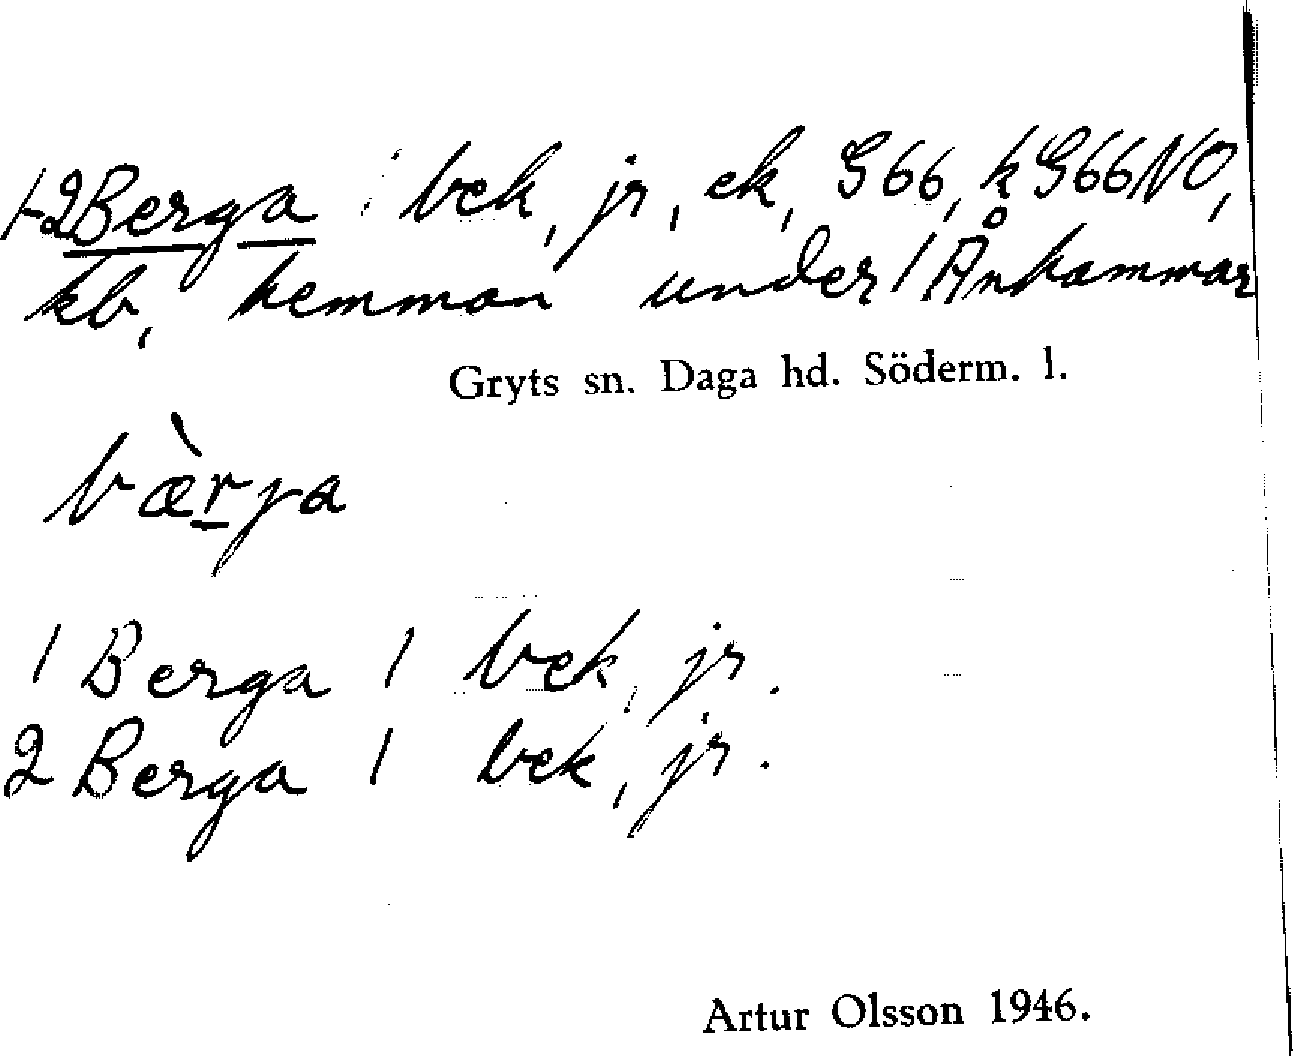 1-2 Berga bek, jr, ek, G66, k G66NO,
kb, hemman under 1 Ånhammar
Gryts sn. Daga hd. Söderm. l.
bæ̀rja
1 Berga 1 bek, jr.
2 Berga 1 bek, jr.
Artur Olsson 1946.